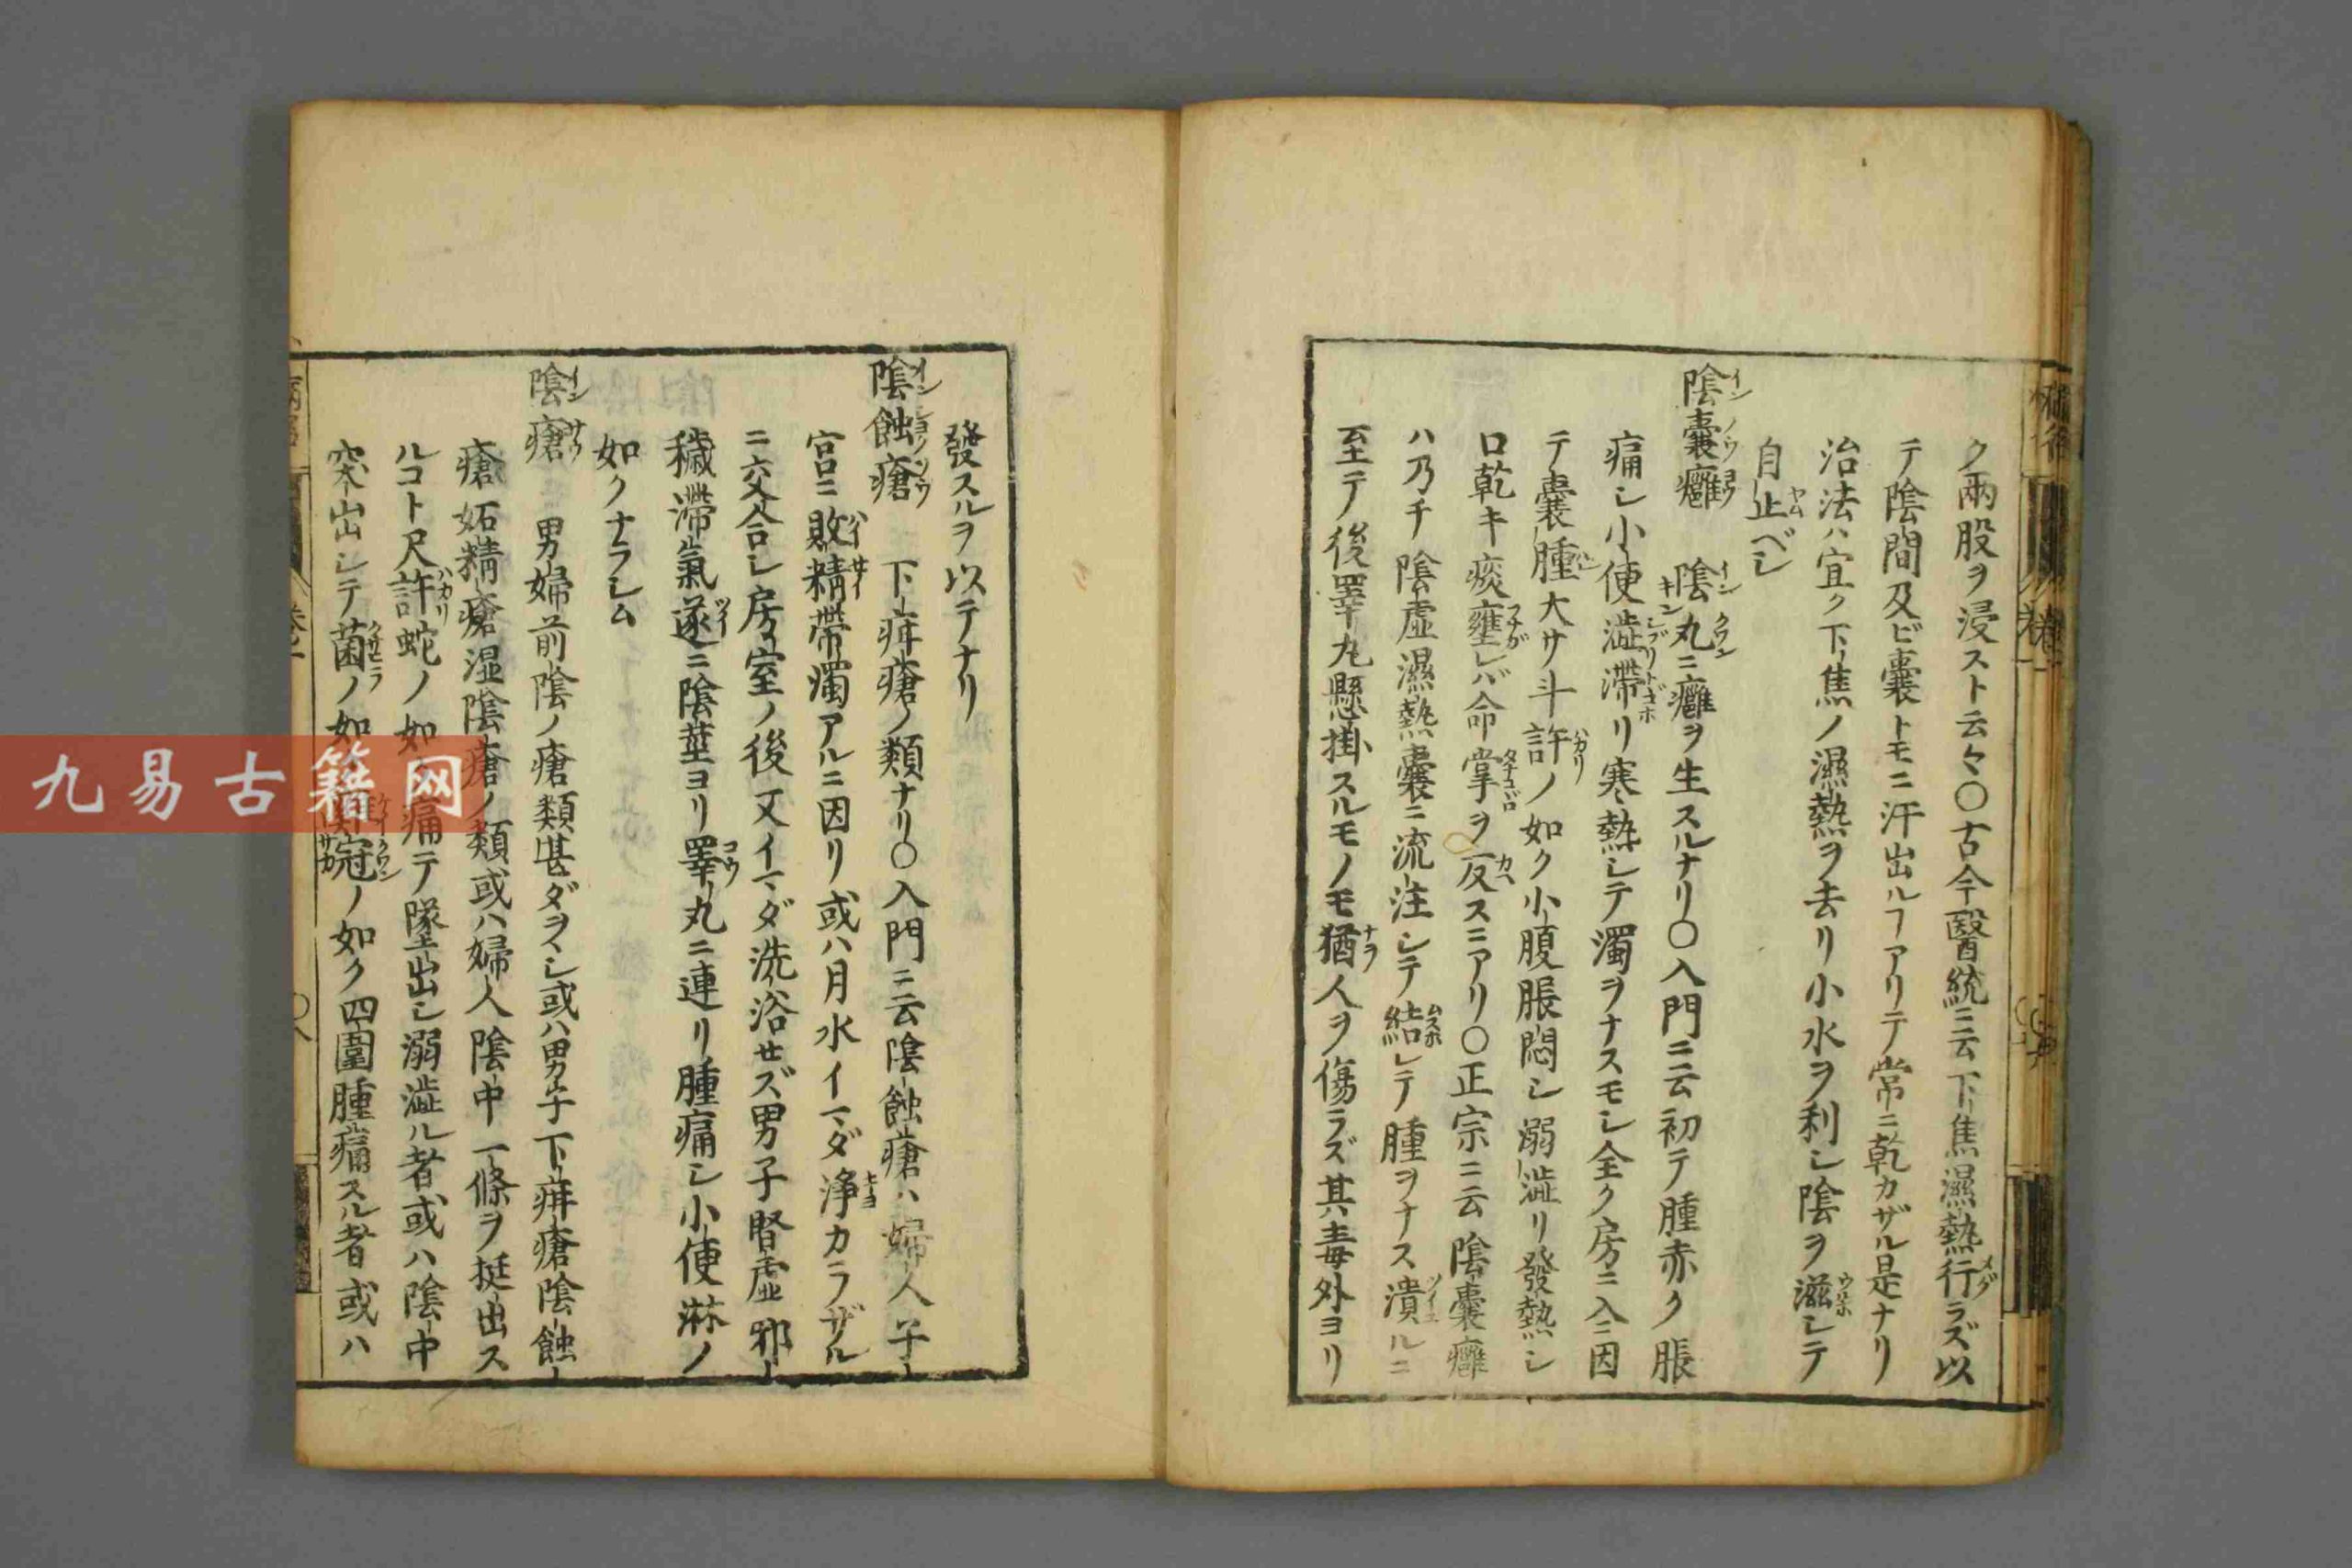 ク兩股ヲ浸スト云々〇古今醫統ニ云下焦濕熱行ラズ以
テ陰間及ビ嚢トモニ汗出ルヿアリテ常ニ乾カザル是ナリ
治法ハ宜ク下焦ノ濕熱ヲ去リ小水ヲ利シ陰ヲ滋シテ
自止ベシ
陰嚢癰 陰丸ニ癰ヲ生スルナリ〇入門ニ云初テ腫赤ク脹
痛シ小便澁滯リ寒熱シテ濁ヲナスモシ全ク房ニ入ニ因
テ嚢腫大サ斗許ノ如ク小腹脹悶シ溺澁リ發熱シ
口乾キ痰壅レバ命掌ヲ反スニアリ〇正宗ニ云陰嚢癰
ハ乃チ陰虚濕熱嚢ニ流注シテ結レテ腫ヲナス潰ルニ
至テ後睪丸懸掛スルモノモ猶人ヲ傷ラズ其毒外ヨリ
發スルヲ以テナリ
陰蝕瘡 下疳瘡ノ類ナリ〇入門ニ云陰蝕瘡ハ婦人子
宮ニ敗精帶濁アルニ因リ或ハ月水イマダ淨カラザル
ニ交合シ房室ノ後又イマダ洗浴セズ男子腎虚邪
穢滯氣遂ニ陰莖ヨリ睪丸ニ連リ腫痛シ小便淋ノ
如クナラシム
陰瘡 男婦前陰ノ瘡類甚ダヲヽシ或ハ男子下疳瘡陰蝕
瘡妬精瘡湿陰瘡ノ類或ハ婦人陰中一條ヲ挺出ス
ルコト尺許蛇ノ如痛テ墜出シ溺澁ル者或ハ陰中
突出シテ菌ノ如冠ノ如ク四圍腫痛スル者或ハ
九易古籍网